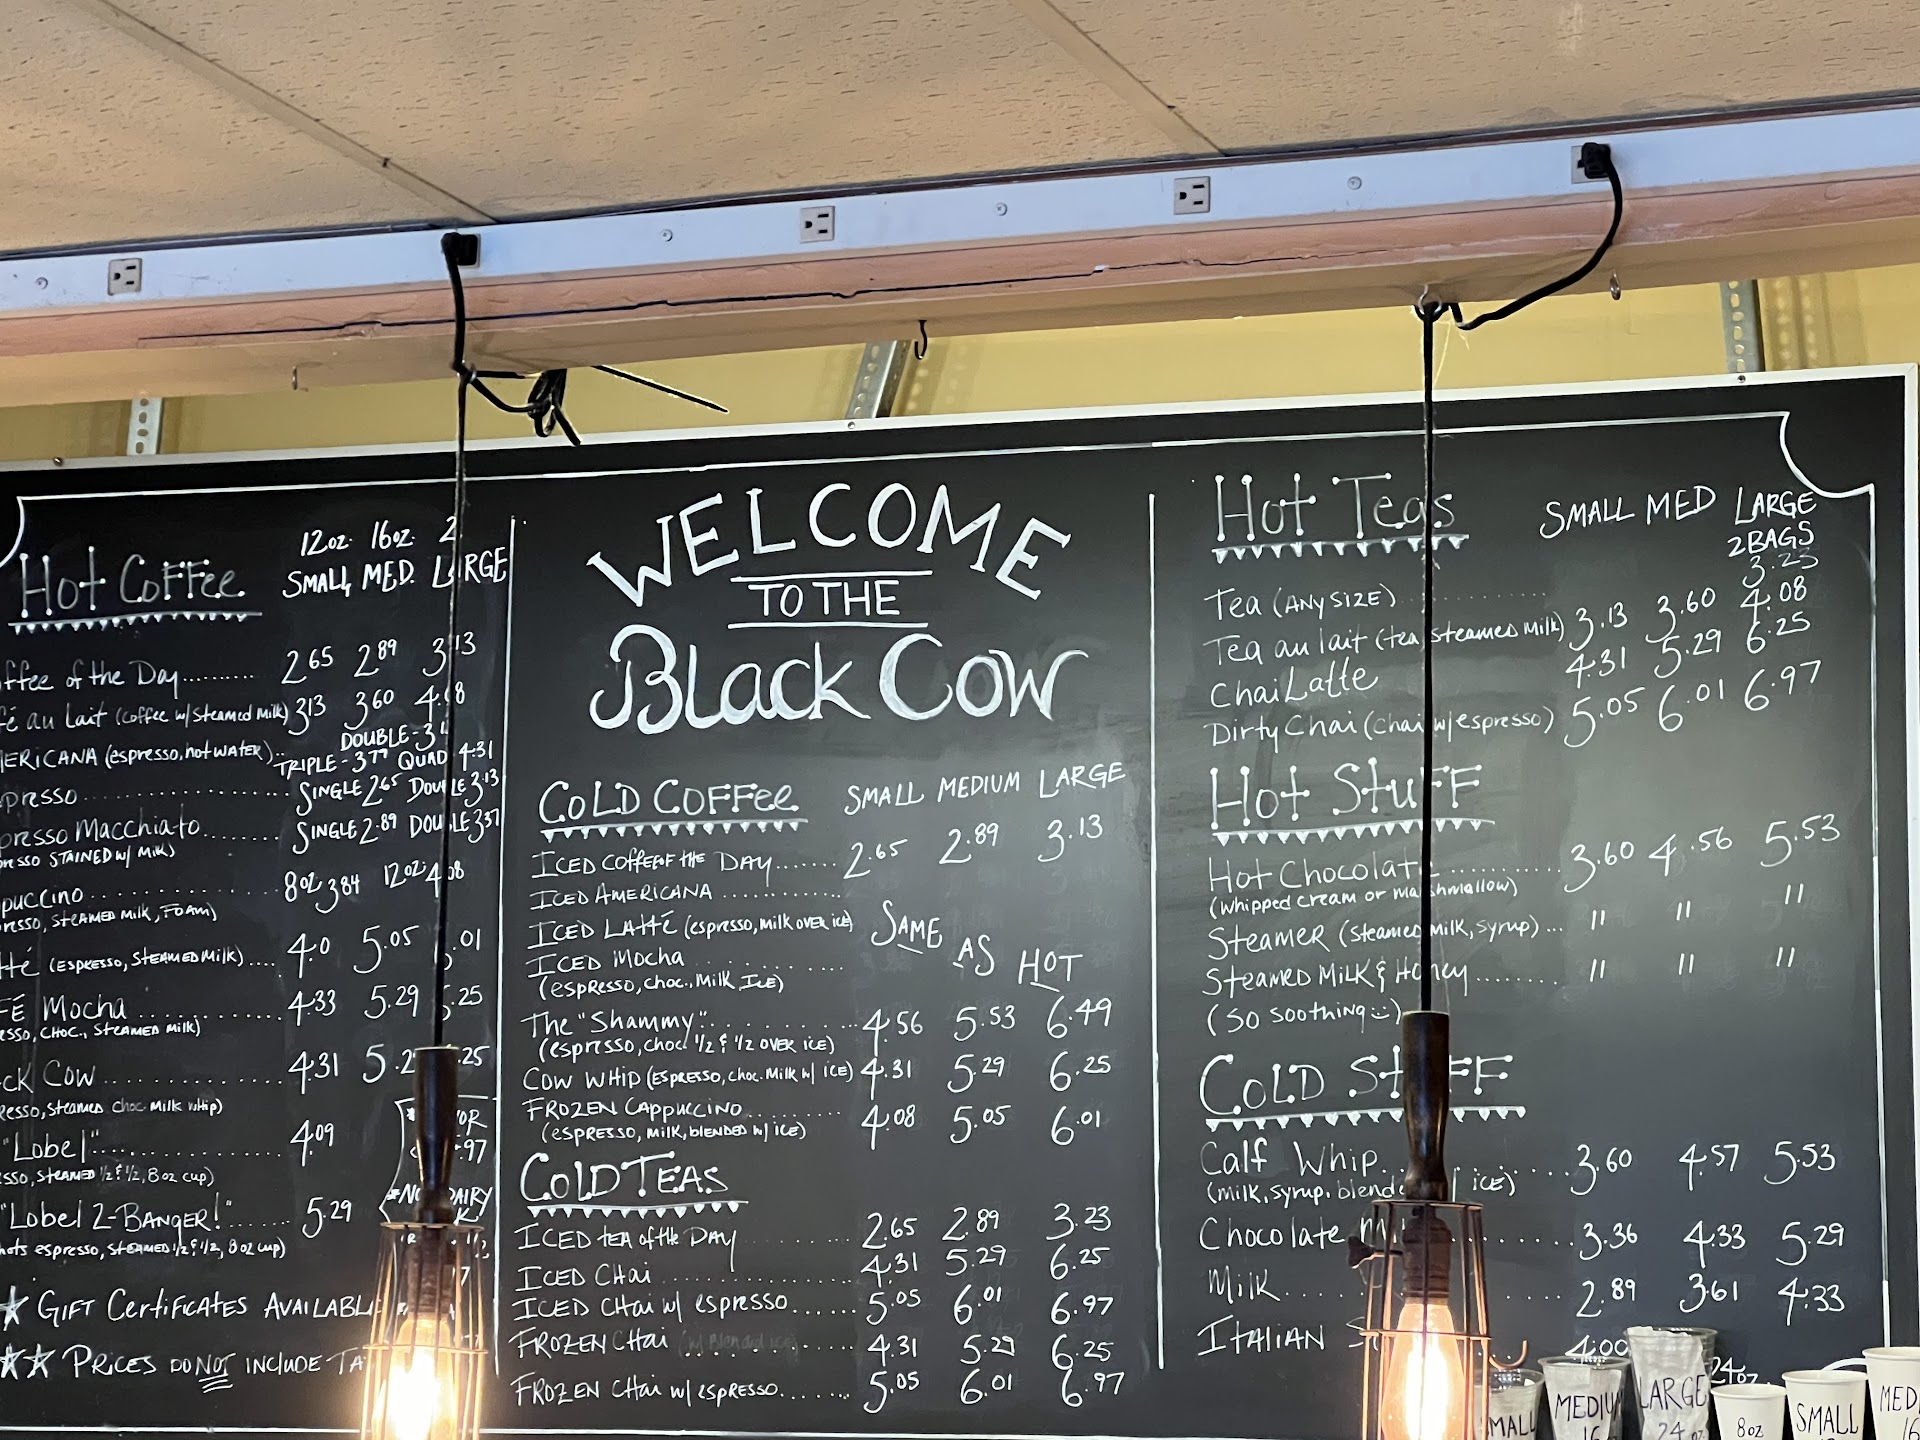 12oz. 16oz. 2
Hot Coffee SMALL MED. LARGE
ffee of the Day.......... 2.65 2.89 3.13
fé au Lait (coffee w/ steamed milk) 3.13 3.60 4.08
DOUBLE-
ERICANA (espresso, hot water)..
TRIPLE-3.77 QUAD 4.31
presso.............. SINGLE 2.65 DOUBLE 3.13
presso Macchiato........ SINGLE 2.89 DOUBLE 3.37
resso STAINED w/ Milk)
puccino............ 8oz 3.84 12oz 4.08
resso, steamed milk, FOAM)
tté (ESPRESSO, STEAMED Milk).... 4.0 5.05 .01
FÉ Mocha............ 4.33 5.29 .25
esso, CHOC., Steamed milk)
ck Cow.............. 4.31 5.2 .25
resso, steamed choc. milk whip)
"Lobel"............. 4.09
sso, steamed 1/2 & 1/2, 8 oz cup)
"Lobel 2-Banger!"...... 5.29
hots espresso, steamed 1/2 & 1/2, 8 oz cup)
GIFT Certificates AVAILABL
PRICES DO NOT INCLUDE TA
WELCOME
TO THE
Black Cow
Cold Coffee SMALL MEDIUM LARGE
ICED COFFEE OF THE DAY....... 2.65 2.89 3.13
ICED AMERICANA ............
ICED LATTÉ (espresso, milk over ice)
ICED Mocha ............
(espresso, choc., Milk, ICE)
SAME AS HOT
The "Shammy"............ 4.56 5.53 6.49
(espresso, choc. 1/2 & 1/2 OVER ICE)
COW WHIP (ESPRESSO, choc. Milk w/ ICE) 4.31 5.29 6.25
FROZEN CAPPUCCINO......... 4.08 5.05 6.01
(ESPRESSO, MILK, blended w/ ICE)
Cold Teas
ICED tea of the DAY......... 2.65 2.89 3.23
ICED CHai.............. 4.31 5.29 6.25
ICED CHai w/ espresso...... 5.05 6.01 6.97
FROZEN CHai (w/ Blended ice) 4.31 5.29 6.25
FROZEN CHai w/ espresso....... 5.05 6.01 6.97
Hot Teas SMALL MED LARGE
2 BAGS
Tea (ANY SIZE) ............ 3.23
Tea au lait (tea, steamed milk) 3.13 3.60 4.08
Chai Latte 4.31 5.29 6.25
Dirty Chai (chai w/ espresso) 5.05 6.01 6.97
Hot Stuff
Hot Chocolate............ 3.60 4.56 5.53
(whipped cream or marshmallow)
Steamer (steamed milk, syrup)... " " "
Steamed Milk & Honey........ " " "
(so soothing :))
Cold Stuff
Calf Whip............ 3.60 4.57 5.53
(milk, syrup, blended w/ ICE)
Chocolate Mi 3.36 4.33 5.29
Milk.............. 2.89 3.61 4.33
Italian S 4.00
24oz
MEDIUM
16
LARGE
24 oz
8oz
SMALL
MED
16